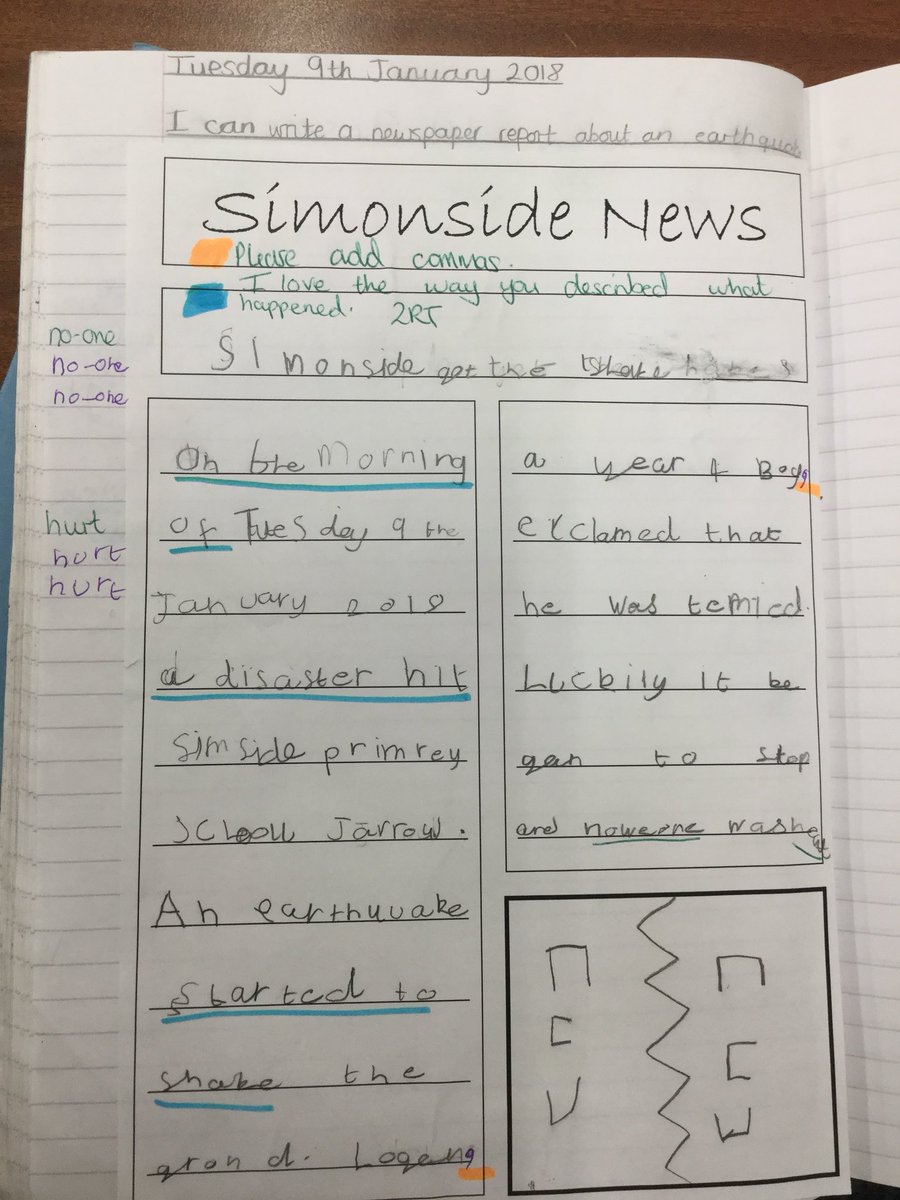 Tuesday 9th January 2018
I can write a newspaper report about an earthquak
Simonside News
Please add commas.
I love the way you described what
happened. 2RT
Simonside get the shake
no-one
no-one
no-one
hurt
hurt
hurt
On the Morning
of Tuesday 9 the
January 2018
a disaster hit
Simside primrey
School Jarrow.
An earthuuake
started to
shake the
grond. Logan,
a year 4 Boy,
exclamed that
he was
Luckily it be
gan to stop
and noweone was